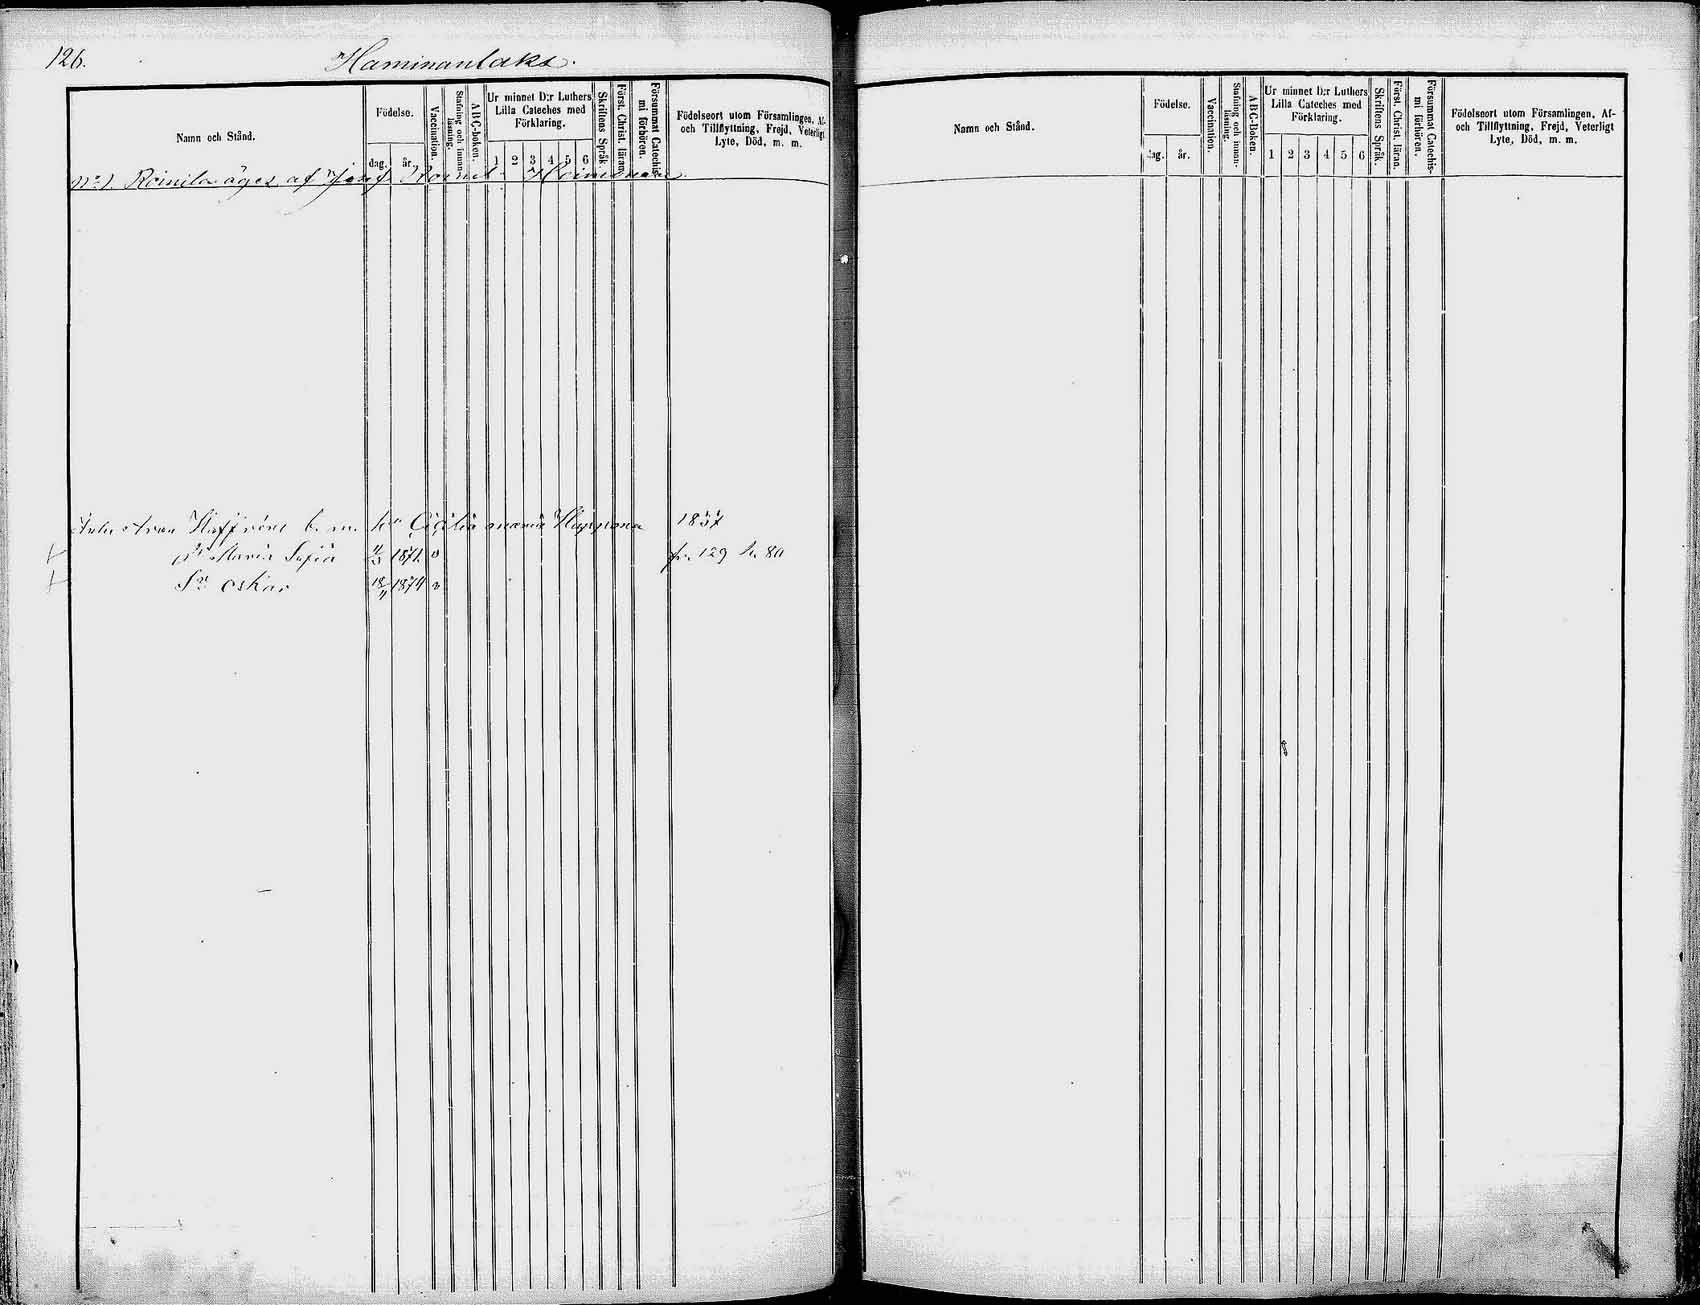 126.
Haminanlaks.
Namn och Stånd.
Födelse.
dag.
år.
Vaccination.
Stafning och innanläsning.
ABC-boken.
Ur minnet D:r Luthers
Lilla Cateches med
Förklaring.
1 2 3 4 5 6
Skriftens Språk.
Först. Christ. läran.
Försummat Catechismi förhören.
Födelseort utom Församlingen, Af-
och Tillflyttning, Frejd, Veterligt
Lyte, Död, m. m.
No 1 Roinila äges af Josef
b. m. Maria 1837
Maria Sofia 11/3 1871. v fr. 129 80
Sn Oskar 18/11 1874 v
Namn och Stånd.
Födelse.
dag.
år.
Vaccination.
Stafning och innanläsning.
ABC-Boken.
Ur minnet D:r Luthers
Lilla Cateches med
Förklaring.
1 2 3 4 5 6
Skriftens Språk.
Först. Christ. läran.
Försummat Catechismi förhören.
Födelseort utom Församlingen, Af-
och Tillflyttning, Frejd, Veterligt
Lyte, Död, m. m.